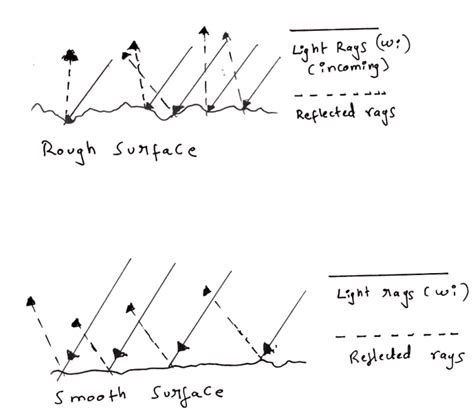 Light Rays (wi)
(incoming)
Reflected rays
Rough Surface
Light rays (wi)
Reflected rays
Smooth Surface